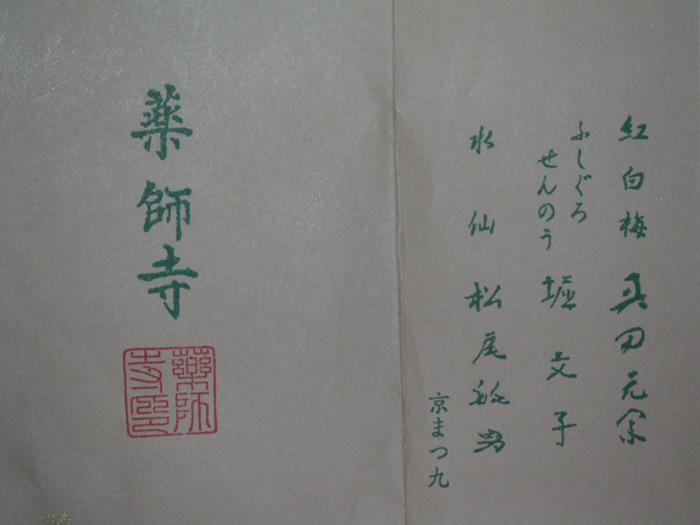 紅白梅 奥田元宋
ふしぐろ
せんのう 堀文子
水仙 松尾敏男
京まつ九
薬師寺
藥師寺印